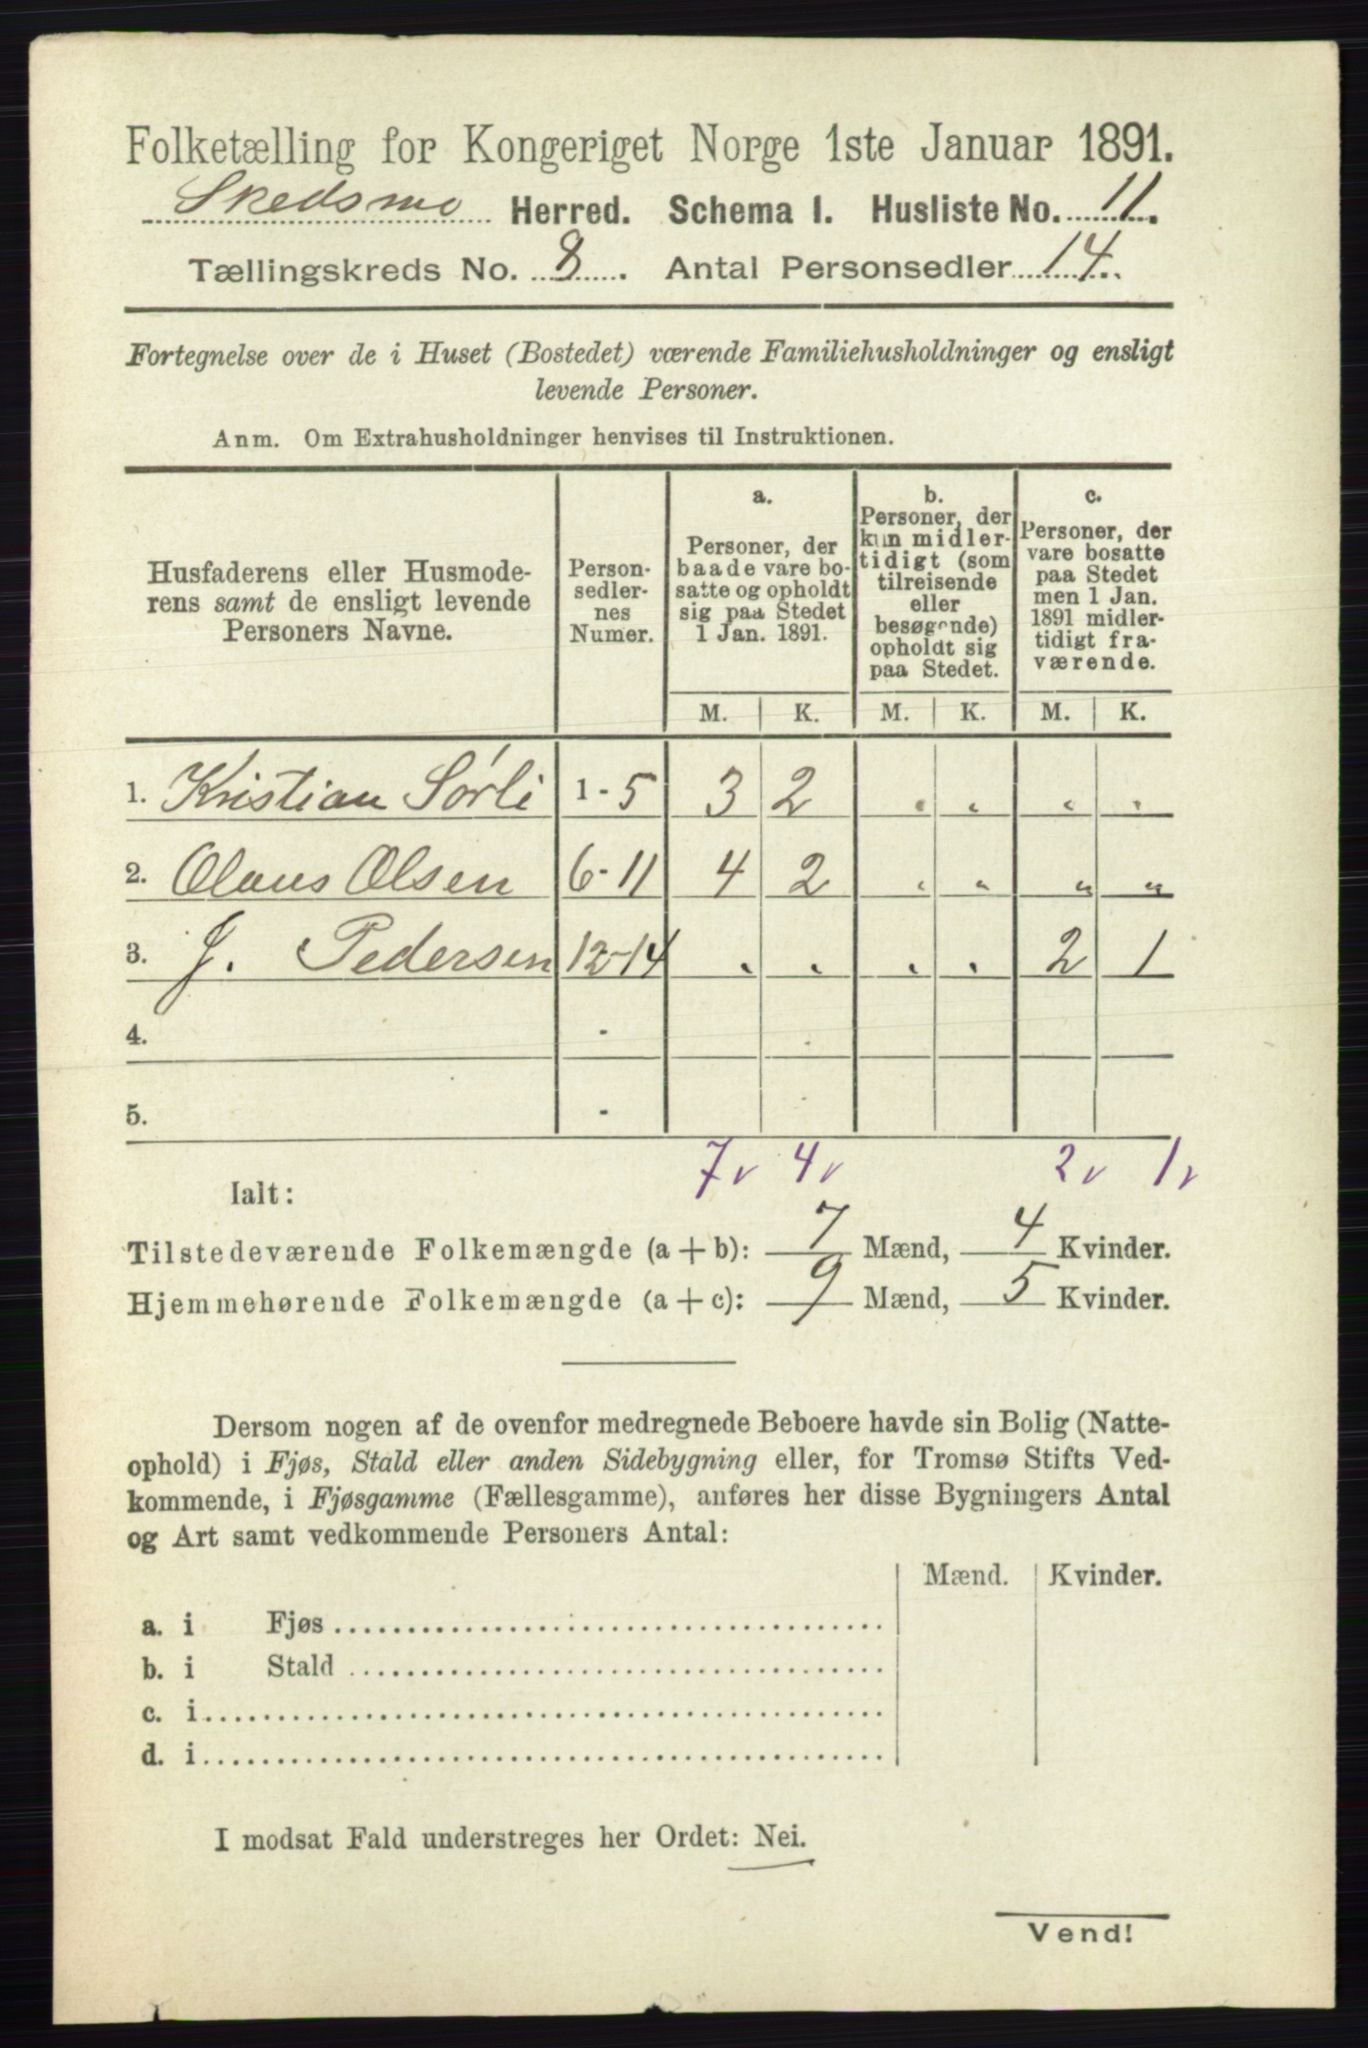 Folketælling for Kongeriget Norge 1ste Januar 1891.
Skedsmo Herred. Schema I. Husliste No. 11.
Tællingskreds No. 8. Antal Personsedler 14.
Fortegnelse over de i Huset (Bostedet) værende Familiehusholdninger og ensligt
levende Personer.
Anm. Om Extrahusholdninger henvises til Instruktionen.
Husfaderens eller Husmode-
rens samt de ensligt levende
Personers Navne.
Person-
sedler-
nes
Numer.
a.
Personer, der
baade vare bo-
satte og opholdt
sig paa Stedet
1 Jan. 1891.
b.
Personer, der
kun midler-
tidigt (som
tilreisende
eller
besøgende)
opholdt sig
paa Stedet.
c.
Personer, der
vare bosatte
paa Stedet
men 1 Jan.
1891 midler-
tidigt fra-
værende.
M. K. M. K. M. K.
1. Kristian Sørli 1-5 3 2 „ „ „ „
2. Olaus Olsen 6-11 4 2 „ „ „ „
3. J. Pedersen 12-14 „ „ „ „ 2 1
4. -
5. -
7v 4v 2v 1v
Ialt:
Tilstedeværende Folkemængde (a + b): 7 Mænd, 4 Kvinder.
Hjemmehørende Folkemængde (a + c): 9 Mænd, 5 Kvinder.
Dersom nogen af de ovenfor medregnede Beboere havde sin Bolig (Natte-
ophold) i Fjøs, Stald eller anden Sidebygning eller, for Tromsø Stifts Ved-
kommende, i Fjøsgamme (Fællesgamme), anføres her disse Bygningers Antal
og Art samt vedkommende Personers Antal:
Mænd. Kvinder.
a. i Fjøs
b. i Stald
c. i
d. i
I modsat Fald understreges her Ordet: Nei.
Vend!